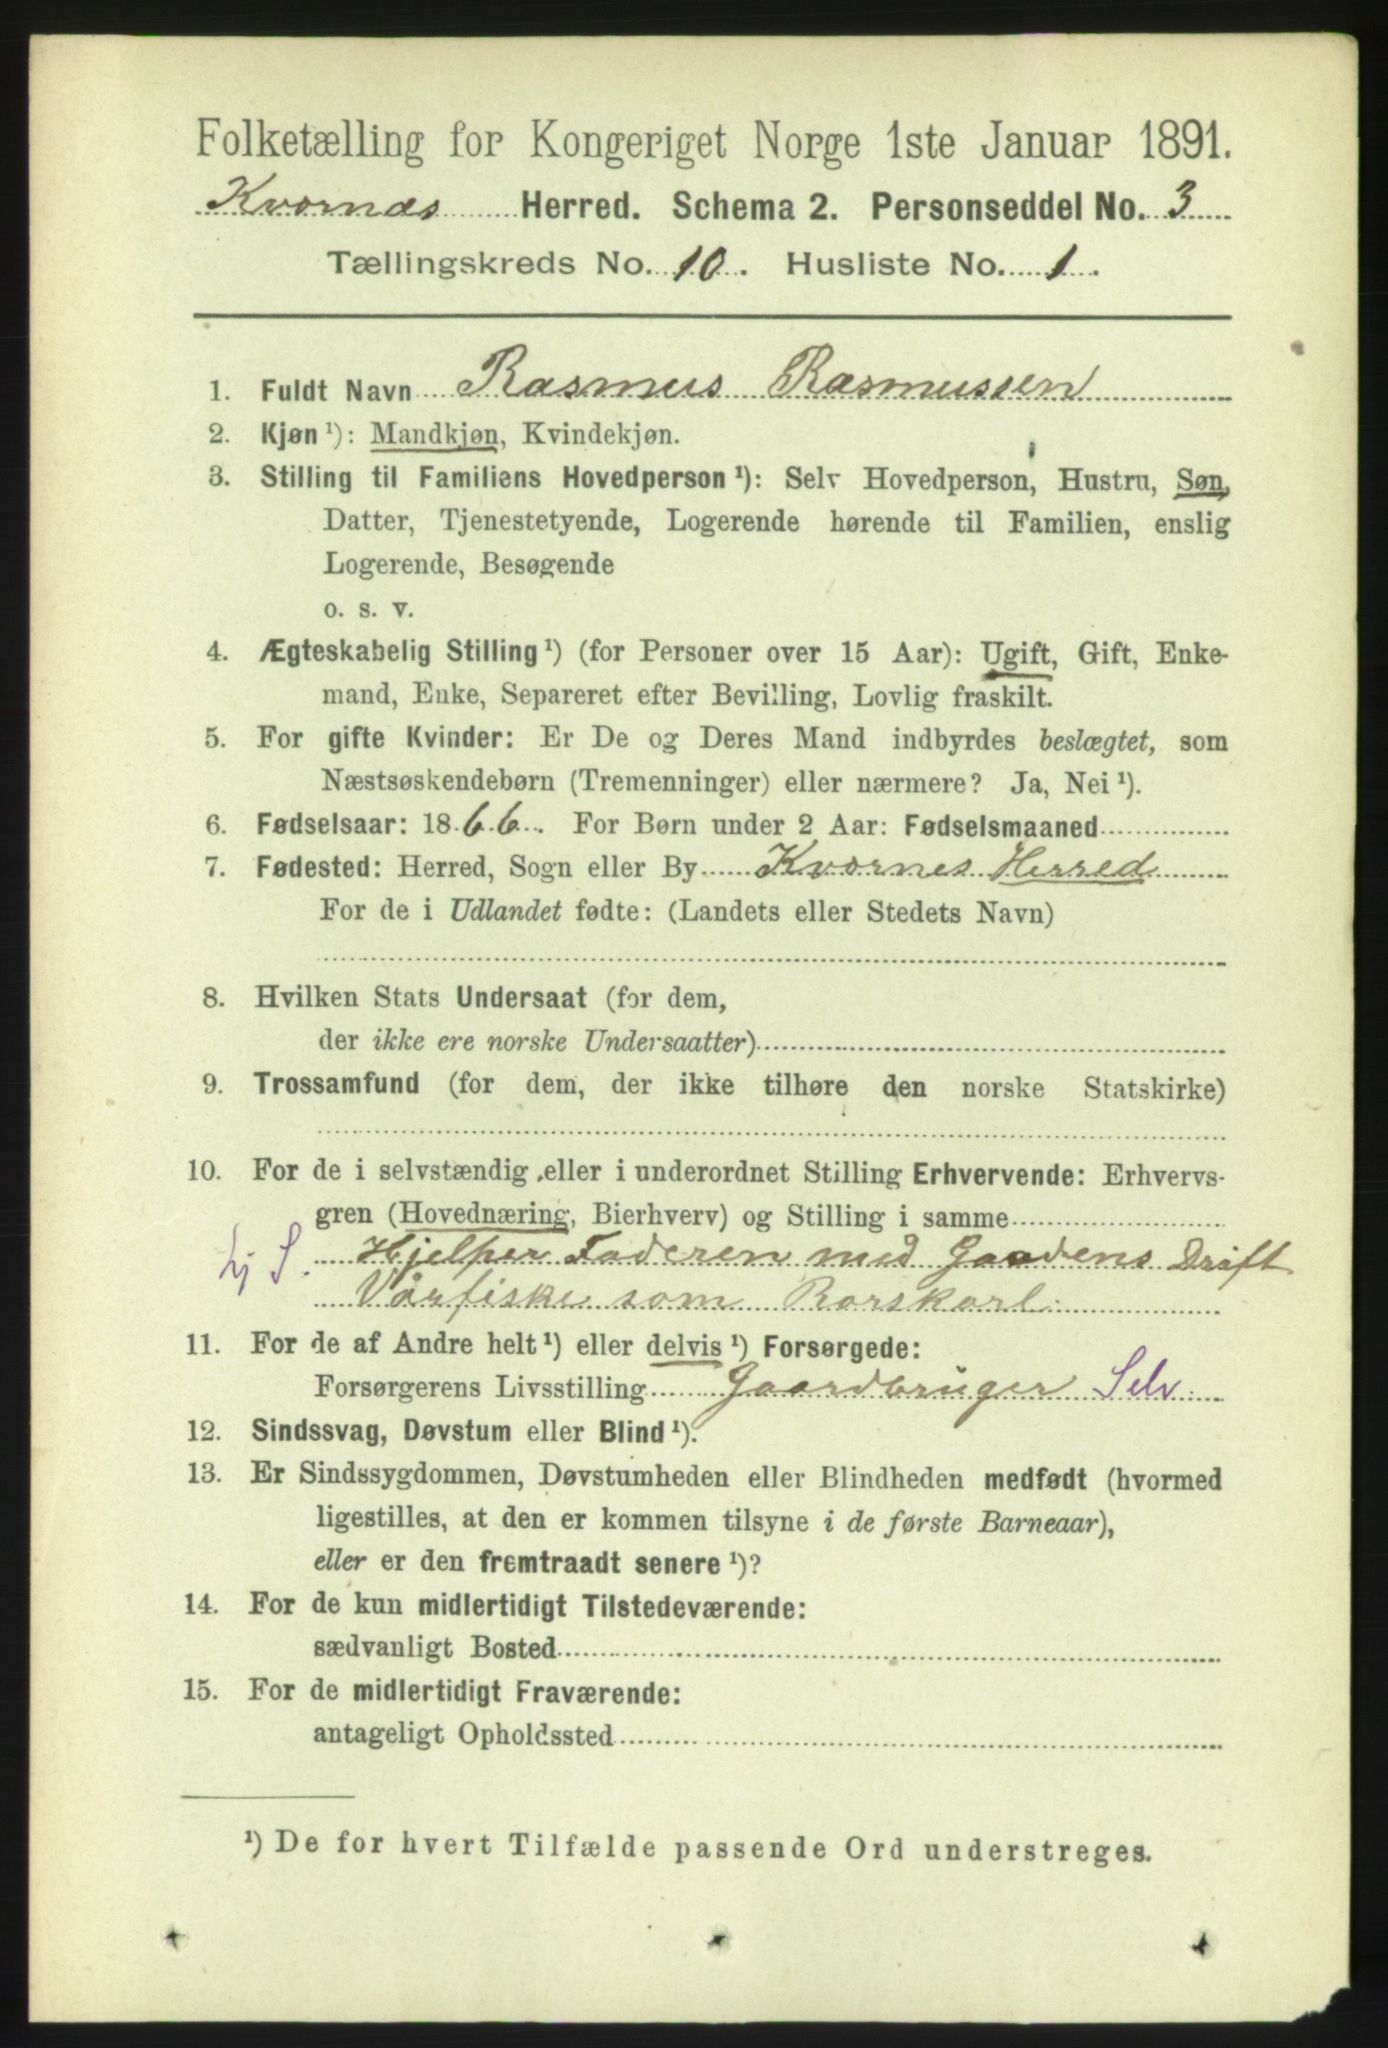 Folketælling for Kongeriget Norge 1ste Januar 1891.
Kvornæs Herred. Schema 2. Personseddel No. 3
Tællingskreds No. 10. Husliste No. 1.
1. Fuldt Navn Rasmus Rasmussen
2. Kjøn ¹): Mandkjøn, Kvindekjøn.
3. Stilling til Familiens Hovedperson ¹): Selv Hovedperson, Hustru, Søn,
Datter, Tjenestetyende, Logerende hørende til Familien, enslig
Logerende, Besøgende
o. s. v.
4. Ægteskabelig Stilling ¹) (for Personer over 15 Aar): Ugift, Gift, Enke-
mand, Enke, Separeret efter Bevilling, Lovlig fraskilt.
5. For gifte Kvinder: Er De og Deres Mand indbyrdes beslægtet, som
Næstsøskendebørn (Tremenninger) eller nærmere? Ja, Nei ¹).
6. Fødselsaar: 1866. For Børn under 2 Aar: Fødselsmaaned
7. Fødested: Herred, Sogn eller By Kvornes Herred
For de i Udlandet fødte: (Landets eller Stedets Navn)
8. Hvilken Stats Undersaat (for dem,
der ikke ere norske Undersaatter)
9. Trossamfund (for dem, der ikke tilhøre den norske Statskirke)
10. For de i selvstændig eller i underordnet Stilling Erhvervende: Erhvervs-
gren (Hovednæring, Bierhverv) og Stilling i samme
Hjelper Faderen med Gaardens Drift
Vårfiske som Rorskarl
11. For de af Andre helt ¹) eller delvis ¹) Forsørgede:
Forsørgerens Livsstilling Gaardbruger Selv
12. Sindssvag, Døvstum eller Blind ¹).
13. Er Sindssygdommen, Døvstumheden eller Blindheden medfødt (hvormed
ligestilles, at den er kommen tilsyne i de første Barneaar),
eller er den fremtraadt senere ¹)?
14. For de kun midlertidigt Tilstedeværende:
sædvanligt Bosted
15. For de midlertidigt Fraværende:
antageligt Opholdssted
¹) De for hvert Tilfælde passende Ord understreges.